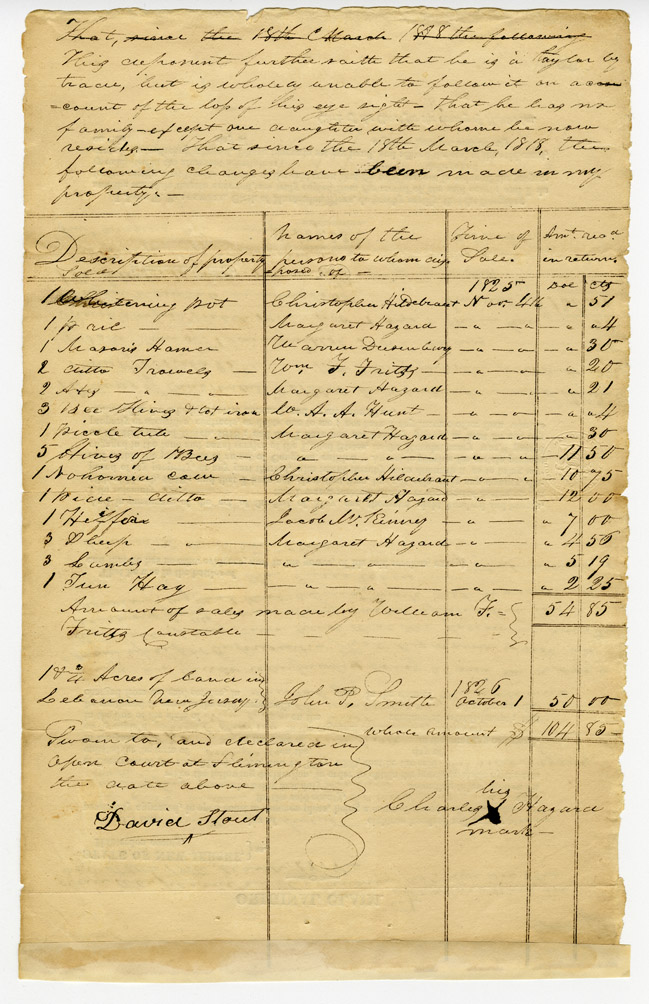 That, since the 18th March 1818 the following
This deponent further saith that he is a taylor by
trade, but is wholely unable to follow it on ac
=count of the loss of his eye sight - that he has no
family - except one daughter with whome he now
resides - That since the 18th March, 1818, the
following changes have been made in my
property: -
Description of property sold
Names of the persons to whom dis posed of -
Time of Sale
Amt. recd. in returns
1825 Dol Cts
1 tening pot Christopher Hildebrant Nov. 4th " 51
1 Margaret Hazard - " - " - " 4
1 Masons Hamer Warren Dusenbury - " - " - " 30
2 ditto Trowels - Wm. F. Fritts - " - " - " 20
2 Axes " - " Margaret Hazard - " - " - " 21
3 Bee Hives & lot iron W. A. A. Hunt - " - " - " 4
1 Piccle tub - " Margaret Hazard - " - " - 30
5 Hives of Bees - " - " - " - " - " - 11 50
1 Nohorned cow - Christophher Hildebrant - " - " 10 75
1 - ditto - Margaret Hazard - " - 12 00
1 Heiffer - Jacob Mc.Kinney - " - " 7 00
3 Sheep - " Margaret Hazard - " - " 4 56
3 Lambs - " - " - " - " - " 5 19
1 Tun Hay - " - " - " - " - " 2 25
Amount of sales made by William F. = 54 85
Fritts Constable - - - - -
18 3/4 Acres of land in
Lebanon New Jersey John P. Smith 1826 October 1 50 00
whole amount $ 104 85
Sworn to, and declared in
open court at Flemington
the date above
David Stout
his
Charles X Hazard
mark -